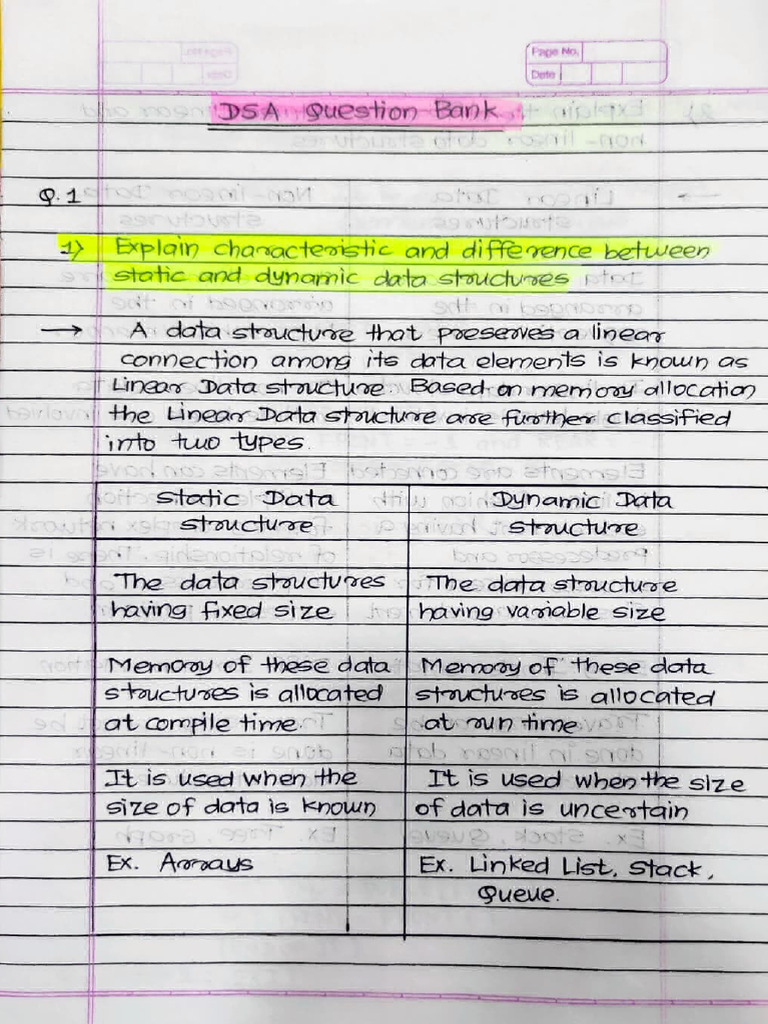 Page No.
Date
DSA Question Bank
Q.1
1) Explain characteristic and difference between
static and dynamic data structures
→ A data structure that preserves a linear
connection among its data elements is known as
Linear Data structure. Based on memory allocation
the Linear Data structure are further classified
into two types.
Static Data
structure
Dynamic Data
structure
The data structures
having fixed size
The data structure
having variable size
Memory of these data
structures is allocated
at compile time.
Memory of these data
structures is allocated
at run time
It is used when the
size of data is known
It is used when the size
of data is uncertain
Ex. Arrays
Ex. Linked List, Stack,
Queue.